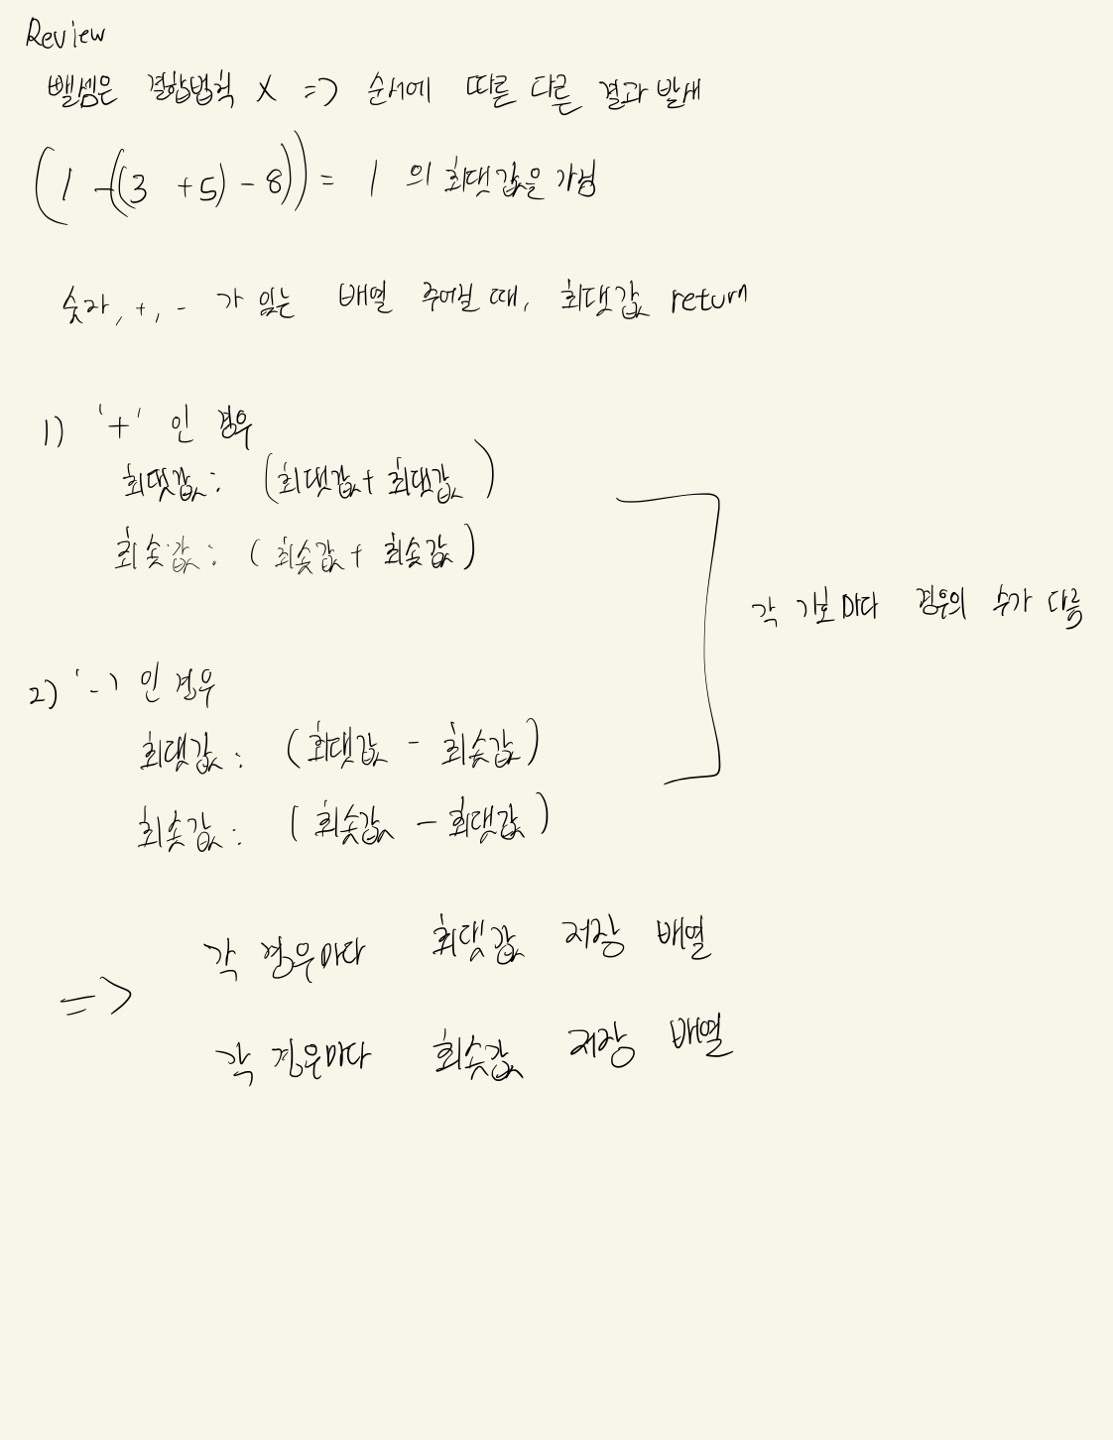 Review
뺄셈은 결합법칙 X => 순서에 따른 다른 결과 발생
(1 -((3 +5) - 8)) = 1 의 최댓값을 가짐
숫자, +, - 가 있는 배열 주어질 때, 최댓값 return
1) '+' 인 경우
최댓값: (최댓값+ 최댓값)
최솟값: (최솟값 + 최솟값)
각 기호마다 경우의 수가 다름
2) '-' 인 경우
최댓값: (최댓값 - 최솟값)
최솟값: (최솟값 - 최댓값)
=> 각 경우마다 최댓값 저장 배열
각 경우마다 최솟값 저장 배열